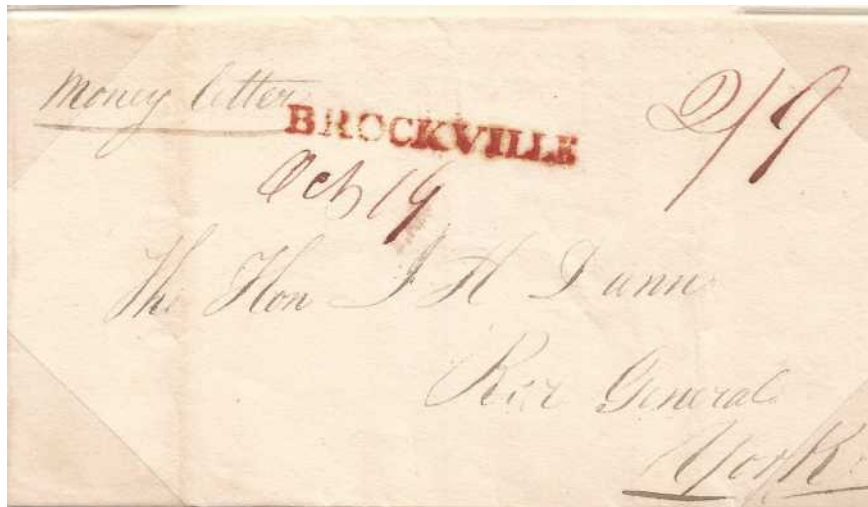 Money letter
BROCKVILLE
2/9
Oct 19
The Hon J H Dunn
Recr General
York